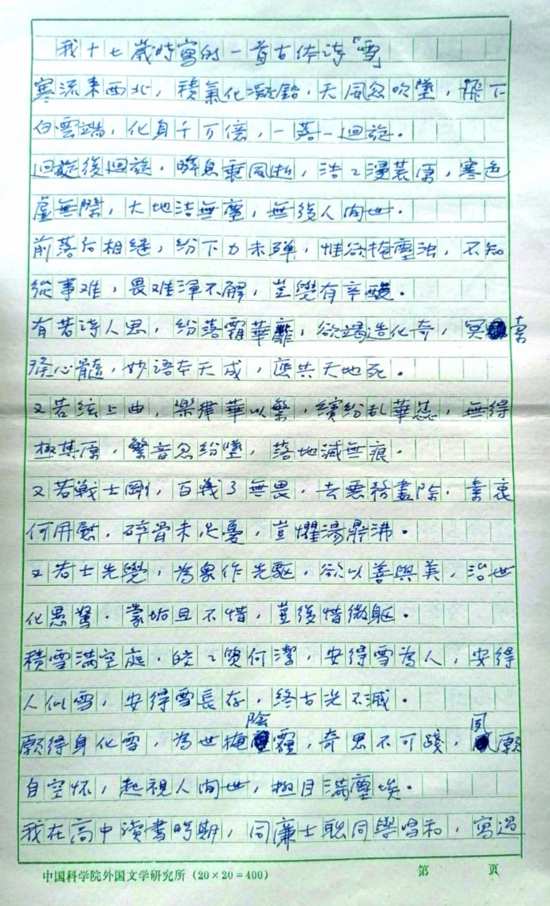 我十七歲時寫的一首古体诗「雪」
寒流來西北，積氣化凝鉛，天風忽吹墮，飛下
白雲端，化身千万億，一落一迴旋。
迴旋復迴旋，瞬息乘風逝，浩々漫荒原，寒色
居無際，大地洁無塵，無復人间世。
前落后相继，纷下力未殫，惟欲掩塵浊，不知
從事难，畏难渾不解，豈變有辛酸。
有若诗人思，纷落霜華靡，欲竭造化奇，冥
心髓，妙语本天成，應共天地死。
又若絃上曲，樂華以繁，繽纷乱華蕊，無得
極其原，繁音忽纷墜，落地減無痕。
又若戰士剛，百戰了無畏，去惡務盡除，
何用慰，碎骨未足憂，豈懼湯鼎沸。
又若士先覺，為衆作先驅，欲以善與美，治世
化愚驽，蒙垢且不惜，豈復惜微軀。
積雪满空庭，皎々質何潔，安得雪為人，安得
人似雪，安得雪長存，终古光不滅。
願得身化雪，為世掩陰霾，奇思不可踐，風願
自空怀，起視人间世，極目满塵埃。
我在高中讀書時期，同廉士聪同學唱和，寫过
中国科学院外国文学研究所（20×20=400） 第 页